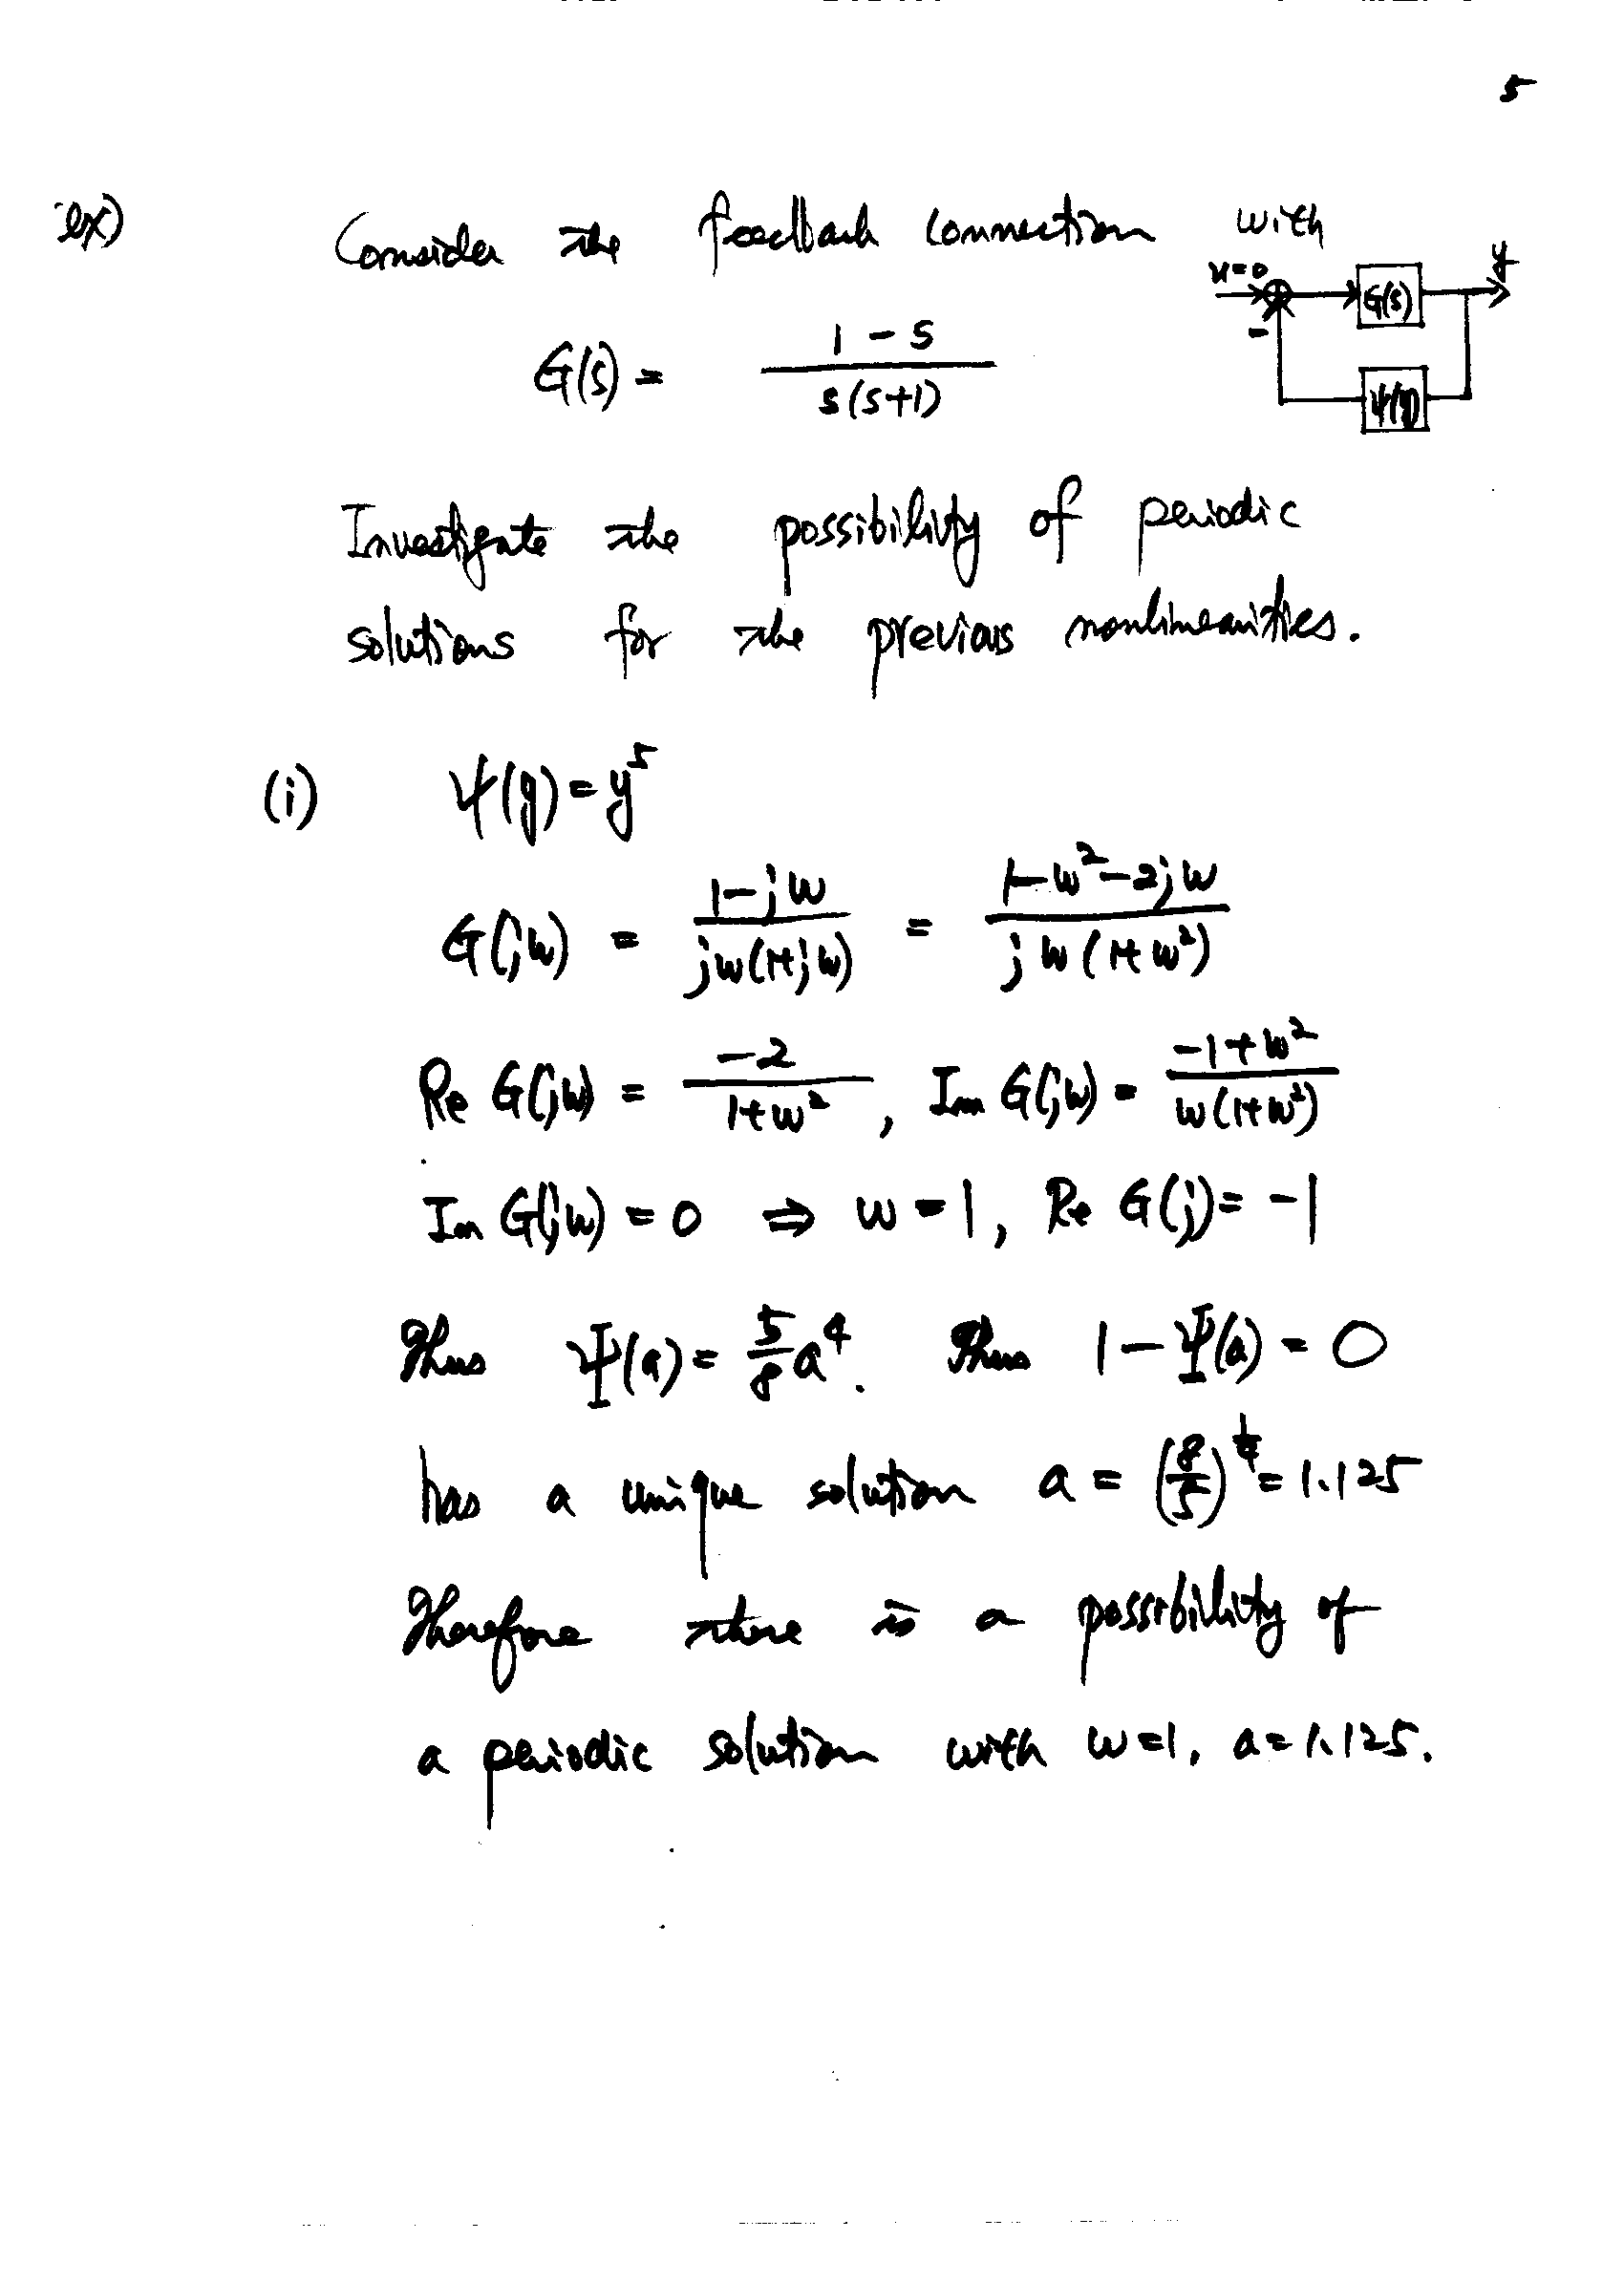 5
ex) Consider the feedback connection with
u=0 G(s) y
-
ψ(y)
G(s) = (1 - s) / (s(s+1))
Investigate the possibility of periodic
solutions for the previous nonlinearities.
(i) ψ(y) = y⁵
G(jw) = (1-jw) / (jw(1+jw)) = (1-w²-2jw) / (jw(1+w²))
Re G(jw) = -2 / (1+w²), Im G(jw) = (-1+w²) / (w(1+w²))
Im G(jw) = 0 ⇒ w = 1, Re G(j) = -1
Thus Ψ(a) = 5/8 a⁴. Thus 1 - Ψ(a) = 0
has a unique solution a = (8/5)^(1/4) = 1.125
Therefore there is a possibility of
a periodic solution with w=1, a=1.125.